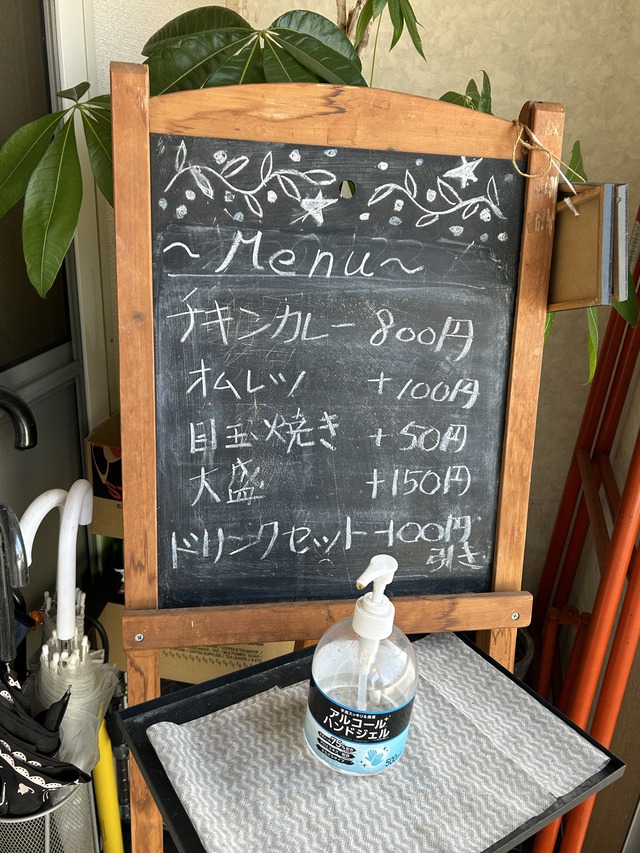 ~Menu~
チキンカレー 800円
オムレツ +100円
目玉焼き +50円
大盛 +150円
ドリンクセット -100円
引き
アルコール
ハンドジェル
500